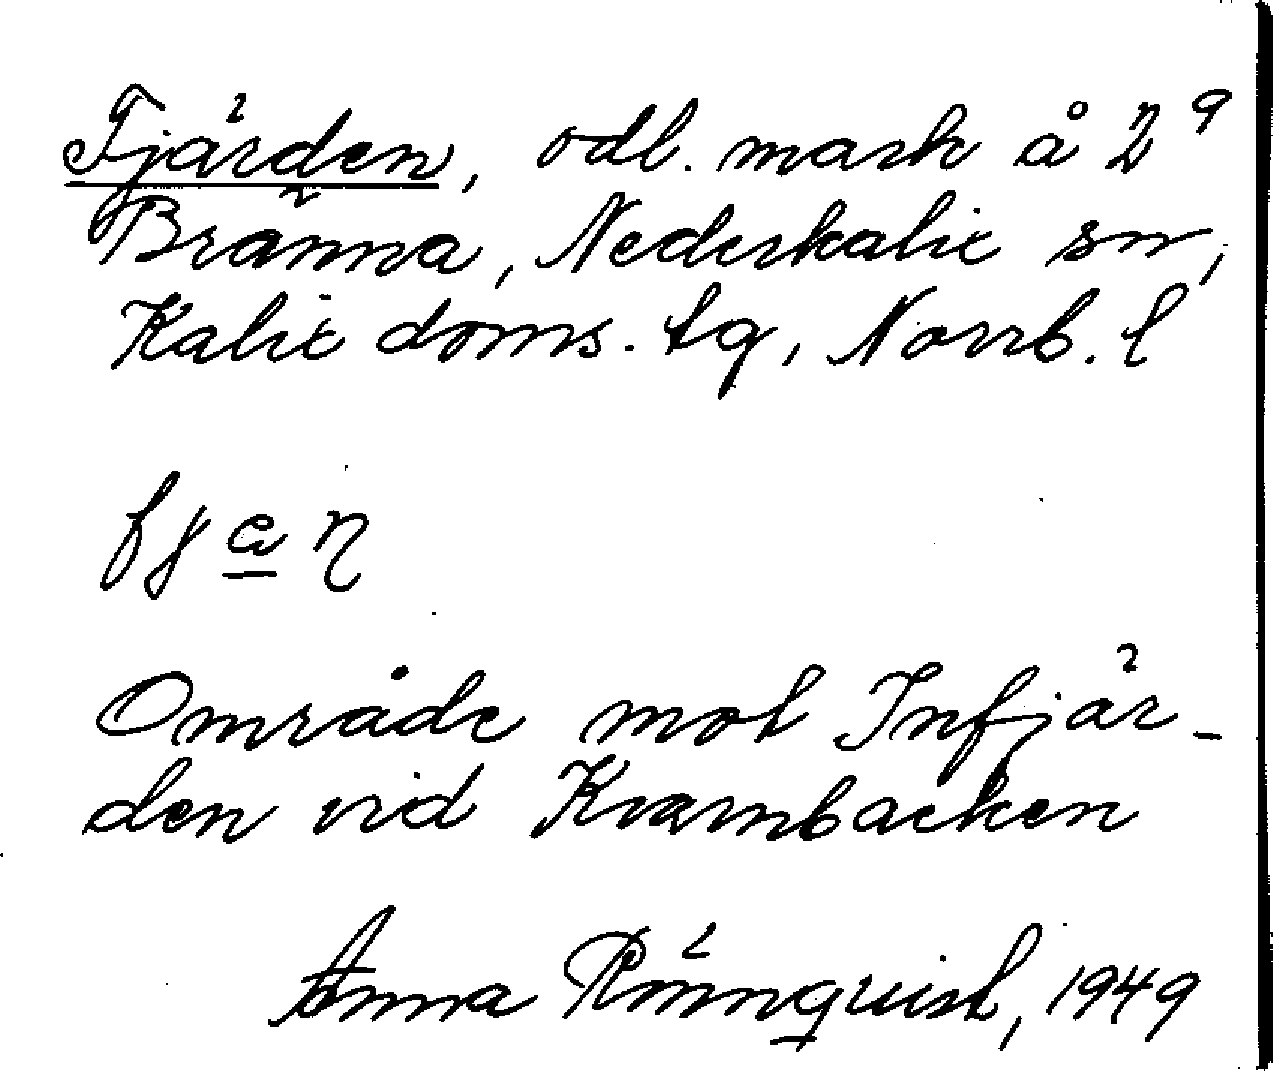 Fjärden, odl. mark å 2⁹
Bränna, Nederkalix sn,
Kalix doms. tg, Norrb. l
Område mot Infjär-
den vid Kvarnbacken
Anna Rönnquist, 1949